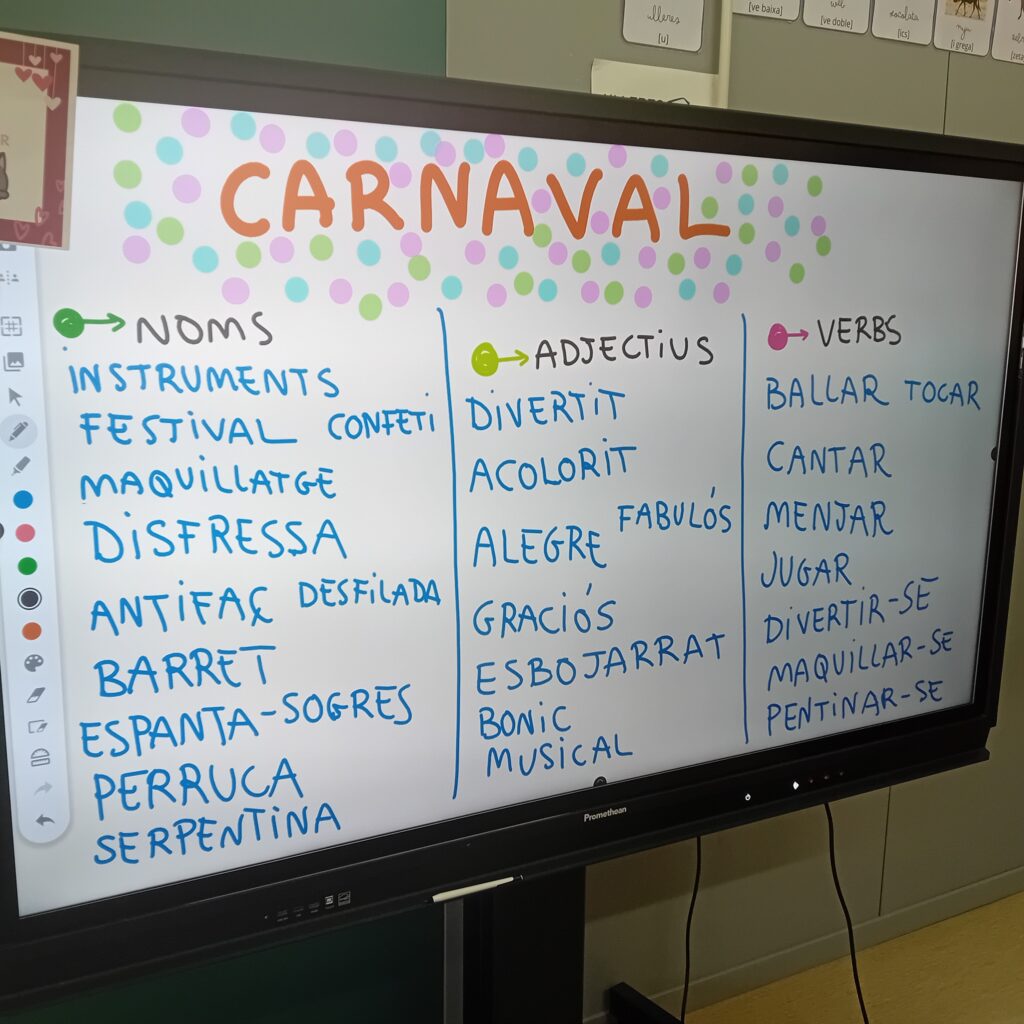 ulleres
[u]
[ve baixa]
[ve doble]
xocolata
[ics]
[i grega]
CARNAVAL
NOMS
INSTRUMENTS
FESTIVAL CONFETI
MAQUILLATGE
DISFRESSA
ANTIFAÇ DESFILADA
BARRET
ESPANTA-SOGRES
PERRUCA
SERPENTINA
ADJECTIUS
DIVERTIT
ACOLORIT
ALEGRE FABULÓS
GRACIÓS
ESBOJARRAT
BONIC
MUSICAL
VERBS
BALLAR TOCAR
CANTAR
MENJAR
JUGAR
DIVERTIR-SE
MAQUILLAR-SE
PENTINAR-SE
Promethean